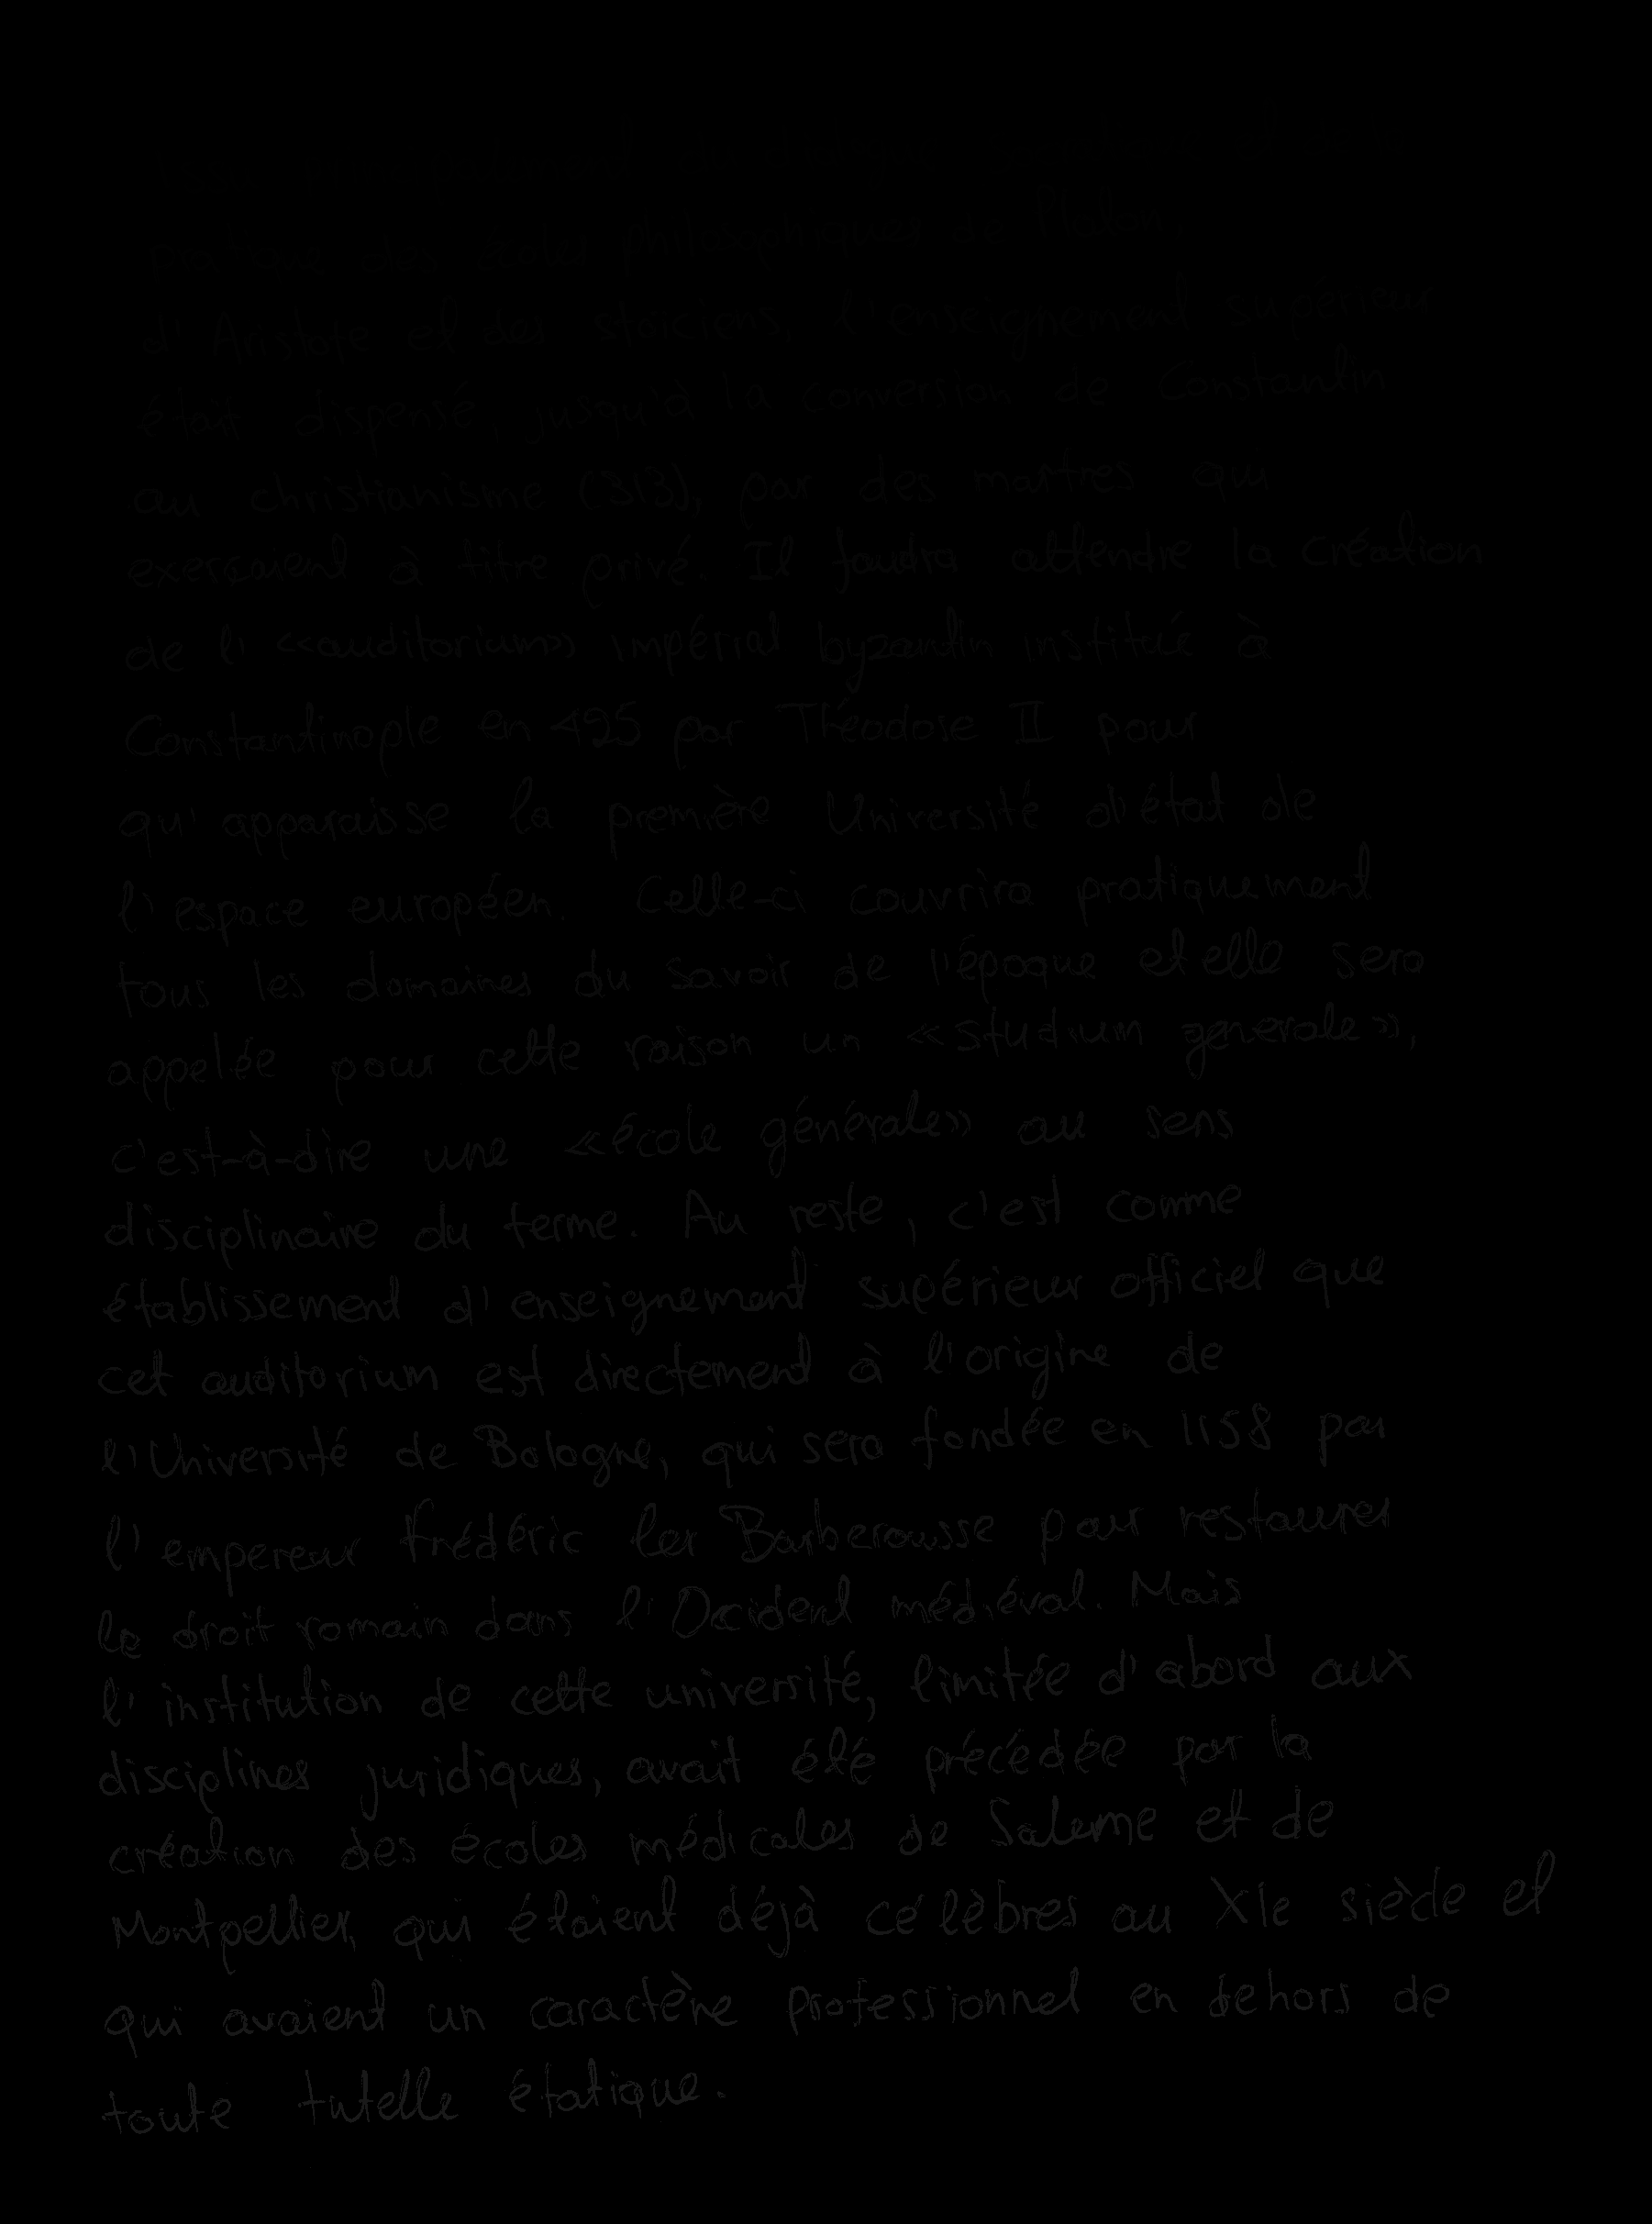 pratique des écoles philosophiques de Platon,
d'Aristote et des stoïciens, l'enseignement supérieur
était dispensé, jusqu'à la conversion de Constantin
au christianisme (313), par des maîtres qui
exerçaient à titre privé. Il faudra attendre la création
de l'«auditorium» impérial byzantin institué à
Constantinople en 425 par Théodose II pour
qu'apparaisse la première Université d'état de
l'espace européen. Celle-ci couvrira pratiquement
tous les domaines du savoir de l'époque et elle sera
appelée pour cette raison un «studium generale»,
c'est-à-dire une «école générale» au sens
disciplinaire du terme. Au reste, c'est comme
établissement d'enseignement supérieur officiel que
cet auditorium est directement à l'origine de
l'Université de Bologne, qui sera fondée en 1158 par
l'empereur Frédéric Ier Barberousse pour restaurer
le droit romain dans l'Occident médiéval. Mais
l'institution de cette université, limitée d'abord aux
disciplines juridiques, avait été précédée par la
création des écoles médicales de Salerne et de
Montpellier, qui étaient déjà célèbres au XIe siècle et
qui avaient un caractère professionnel en dehors de
toute tutelle étatique.